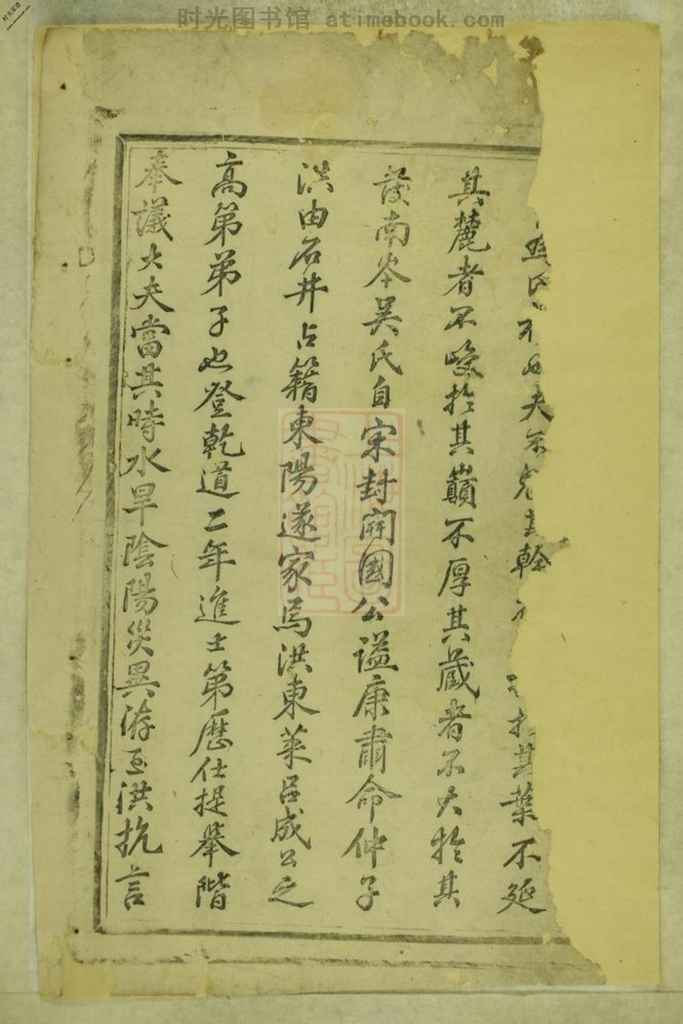 时光图书馆 atimebook.com
氏 不 夫 幹 其葉不延
其麓者不峻於其巔不厚其藏者不大於其
發南岑吳氏自宋封開國公謚康肅命仲子
洪由石井占籍東陽遂家焉洪東萊呂成公之
高第弟子也登乾道二年進士第歷仕提舉階
奉議大夫當其時水旱陰陽災異游亙洪抗言